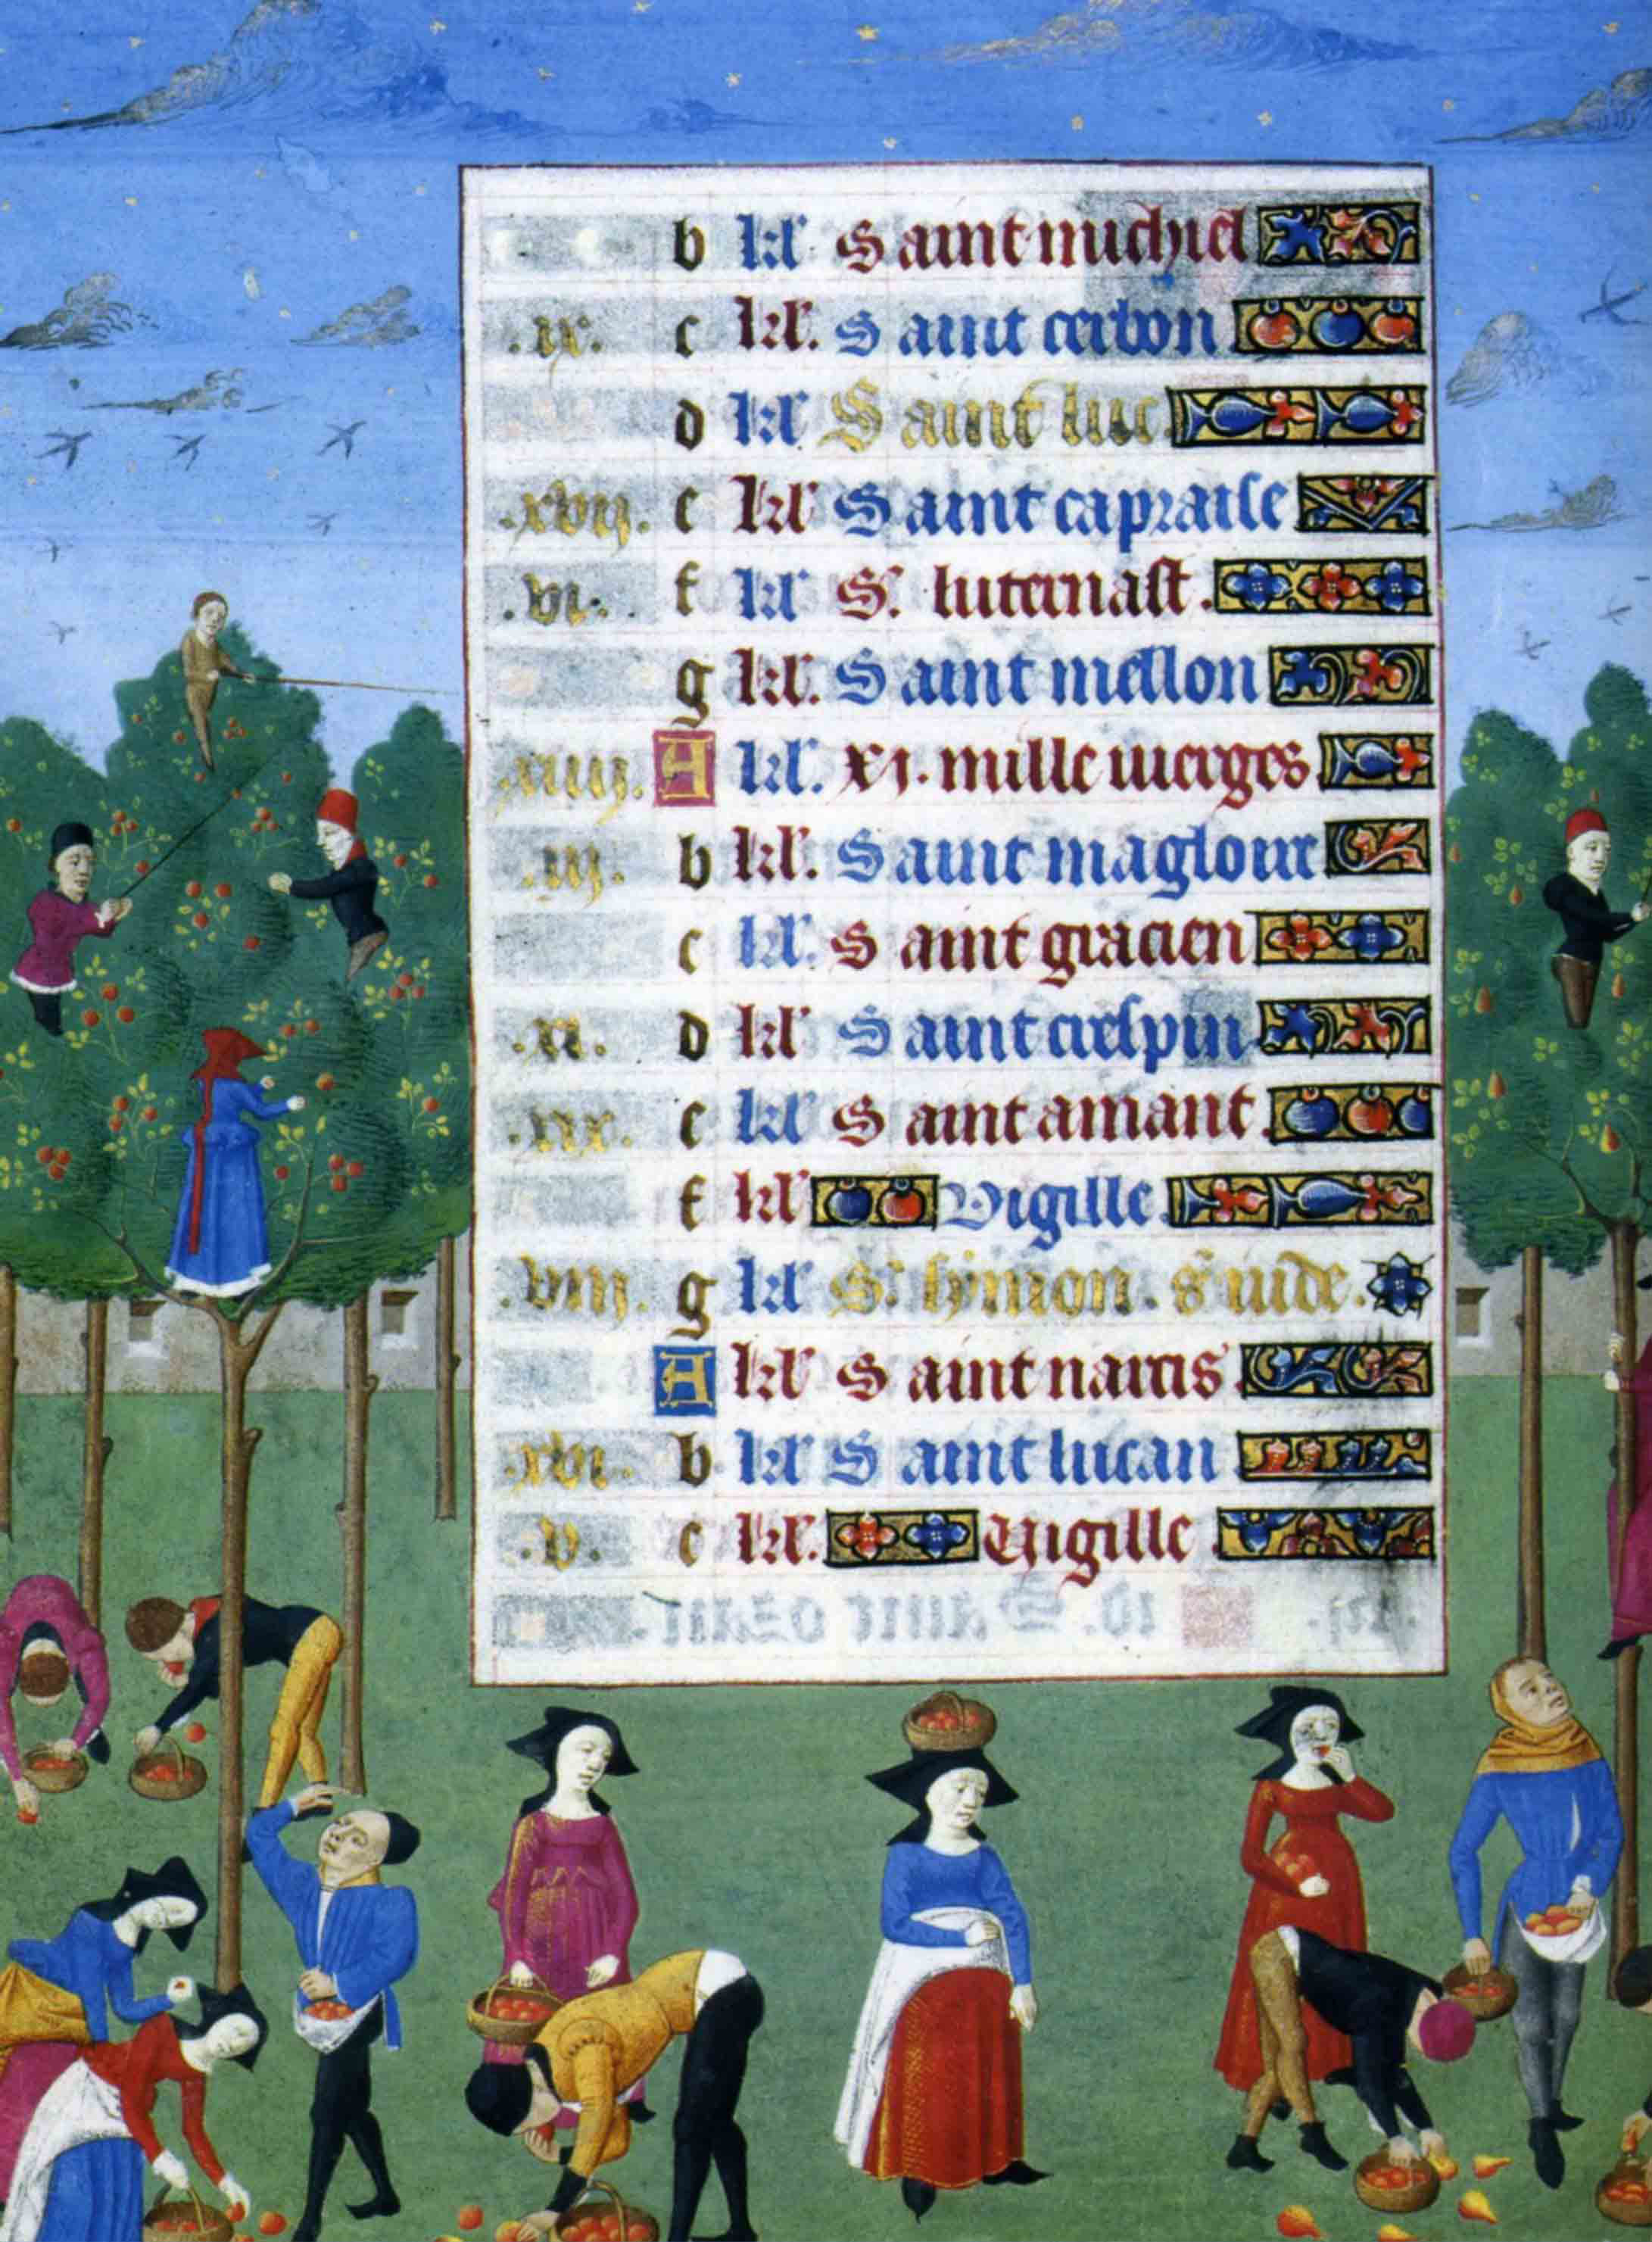 b kl' Saint michiel
.ix. c kl'. Saint cerbon
d kl' Saint luc
.xvij. e kl' Saint capraise
.vi. f kl' S'. luternast.
g kl'. Saint mellon
.xiiij. A kl'. xi. mille vierges
.iij. b kl'. Saint magloire
c kl'. Saint gracien
.xi. d kl' Saint crespin
.xix. e kl' Saint amant.
f kl' Vigille
.viij. g kl' S' symon. s' iude.
A kl' Saint narcis
.xvi. b. kl' Saint lucan
.v. c kl'. Vigille